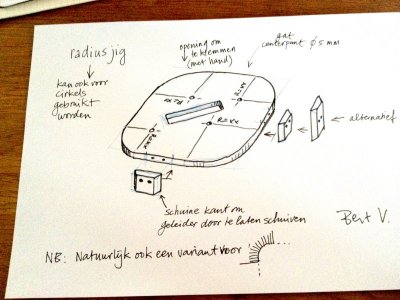 radius jig
kan ook voor
cirkels
gebruikt
worden
opening om
te klemmen
(met hand)
gat
centerpunt ø 5 mm
R=xx
R=xx
alternatief
schuine kant om
geleider door te laten schuiven
Bert V.
NB: Natuurlijk ook een variant voor ...